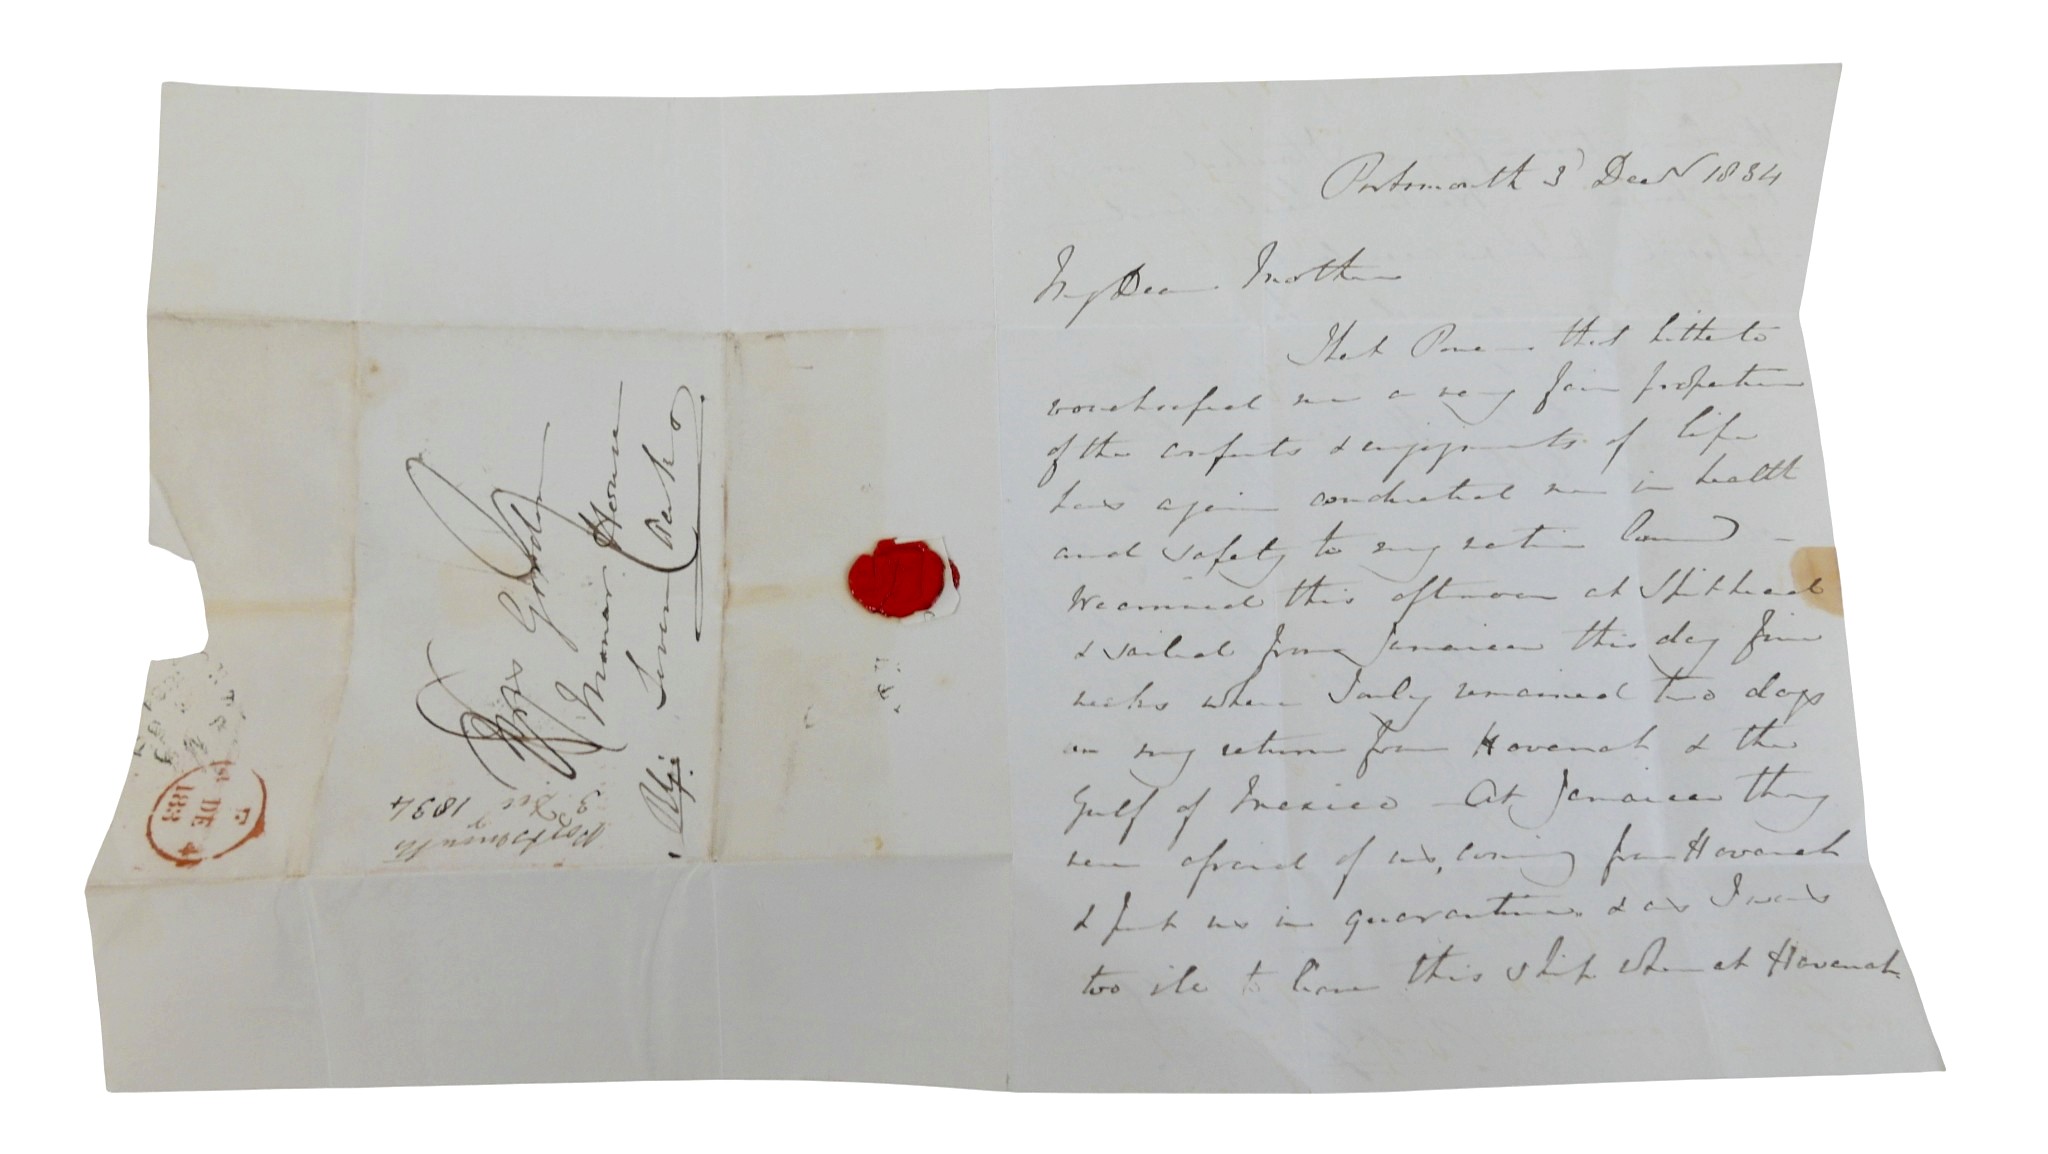 Portsmouth 3 Decr 1834
My Dear Mother
That Power that hitherto
vouchsafed me a very fair proportion
of the comforts & enjoyments of life
has again conducted me in health
and safety to my native land —
We arrived this afternoon at Spithead
& sailed from Jamaica this day five
weeks where I only remained two days
on my return from Havanah & the
Gulf of Mexico — At Jamaica they
were afraid of us, coming from Havanah
& put us in quarantine. & as I was
too ill to leave this ship when at Havanah
Mrs
Manor House
Seven Oaks
Portsmouth
3 Dec
1834
E
DE 4
183